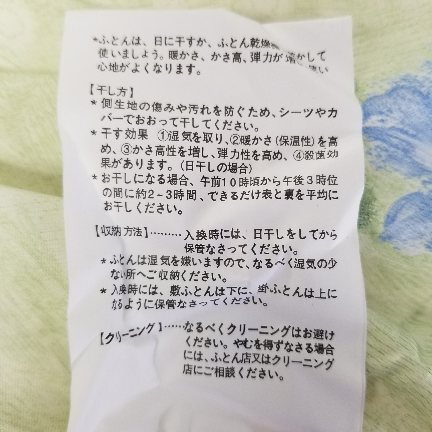 *ふとんは、日に干すか、ふとん乾燥
使いましょう。暖かさ、かさ高、弾力が 復かして
心地がよくなります。
【干し方】
* 側生地の傷みや汚れを防ぐため、シーツやカ
バーでおおって干してください。
* 干す効果 ①湿気を取り、②暖かさ(保温性)を高
め、③かさ高性を増し、弾力性を高め、④殺菌効
果があります。(日干しの場合)
* お干しになる場合、午前10時頃から午後3時位
の間に約2~3時間、できるだけ表と裏を平均に
お干しください。
【収納方法】………入換時には、日干しをしてから
保管なさってください。
* ふとんは湿気を嫌いますので、なるべく湿気の少
ない所へご収納ください。
* 入換時には、敷ふとんは下に、掛ふとんは上に
なるように保管なさってください。
【クリーニング】……なるべくクリーニングはお避け
ください。やむを得ずなさる場合
には、ふとん店又はクリーニング
店にご相談ください。